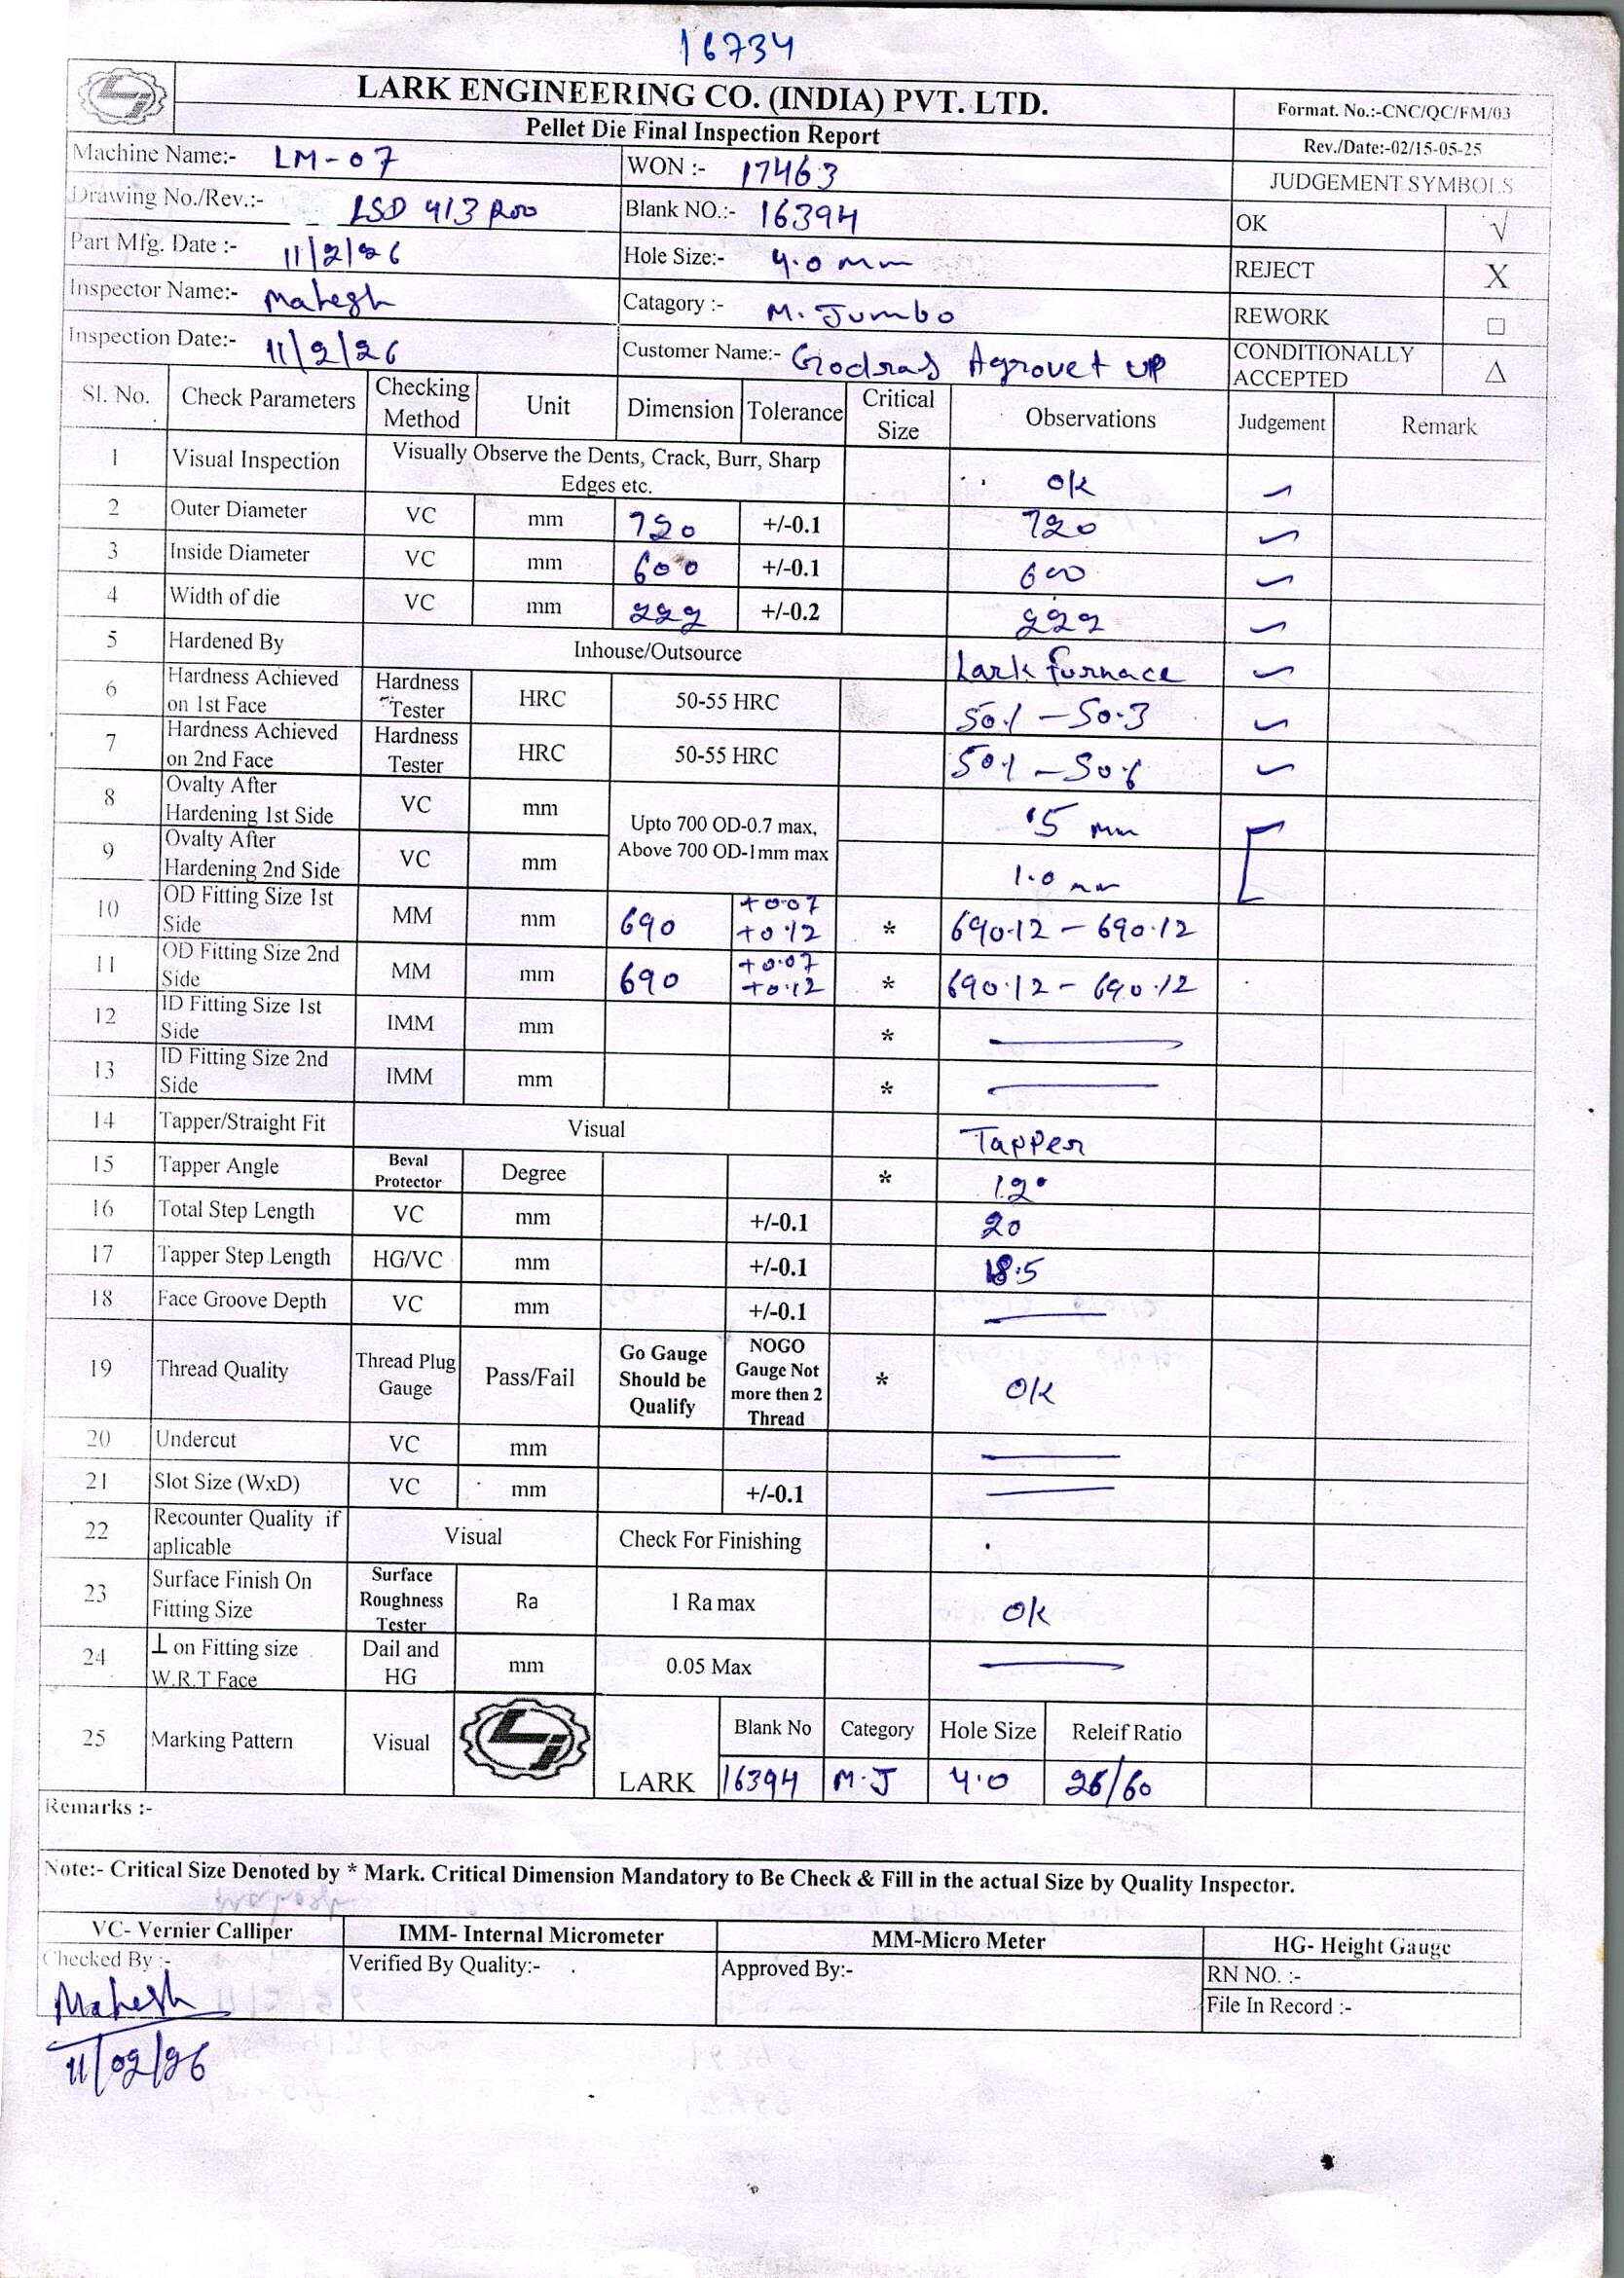 16734
LARK ENGINEERING CO. (INDIA) PVT. LTD.
Format. No.:-CNC/QC/FM/03
Pellet Die Final Inspection Report
Rev./Date:-02/15-05-25
Machine Name:- LM-07 WON :- 17463
JUDGEMENT SYMBOLS
Drawing No./Rev.:- LSD 413 R00 Blank NO.:- 16394 OK √
Part Mfg. Date :- 11/2/26 Hole Size:- 4.0 mm REJECT X
Inspector Name:- Mahesh Catagory :- M. Jumbo REWORK □
Inspection Date:- 11/2/26 Customer Name:- Godraj Agrovet UP CONDITIONALLY ACCEPTED △
Sl. No. Check Parameters Checking Method Unit Dimension Tolerance Critical Size Observations Judgement Remark
1 Visual Inspection Visually Observe the Dents, Crack, Burr, Sharp Edges etc. ok ✓
2 Outer Diameter VC mm 720 +/-0.1 720 ✓
3 Inside Diameter VC mm 600 +/-0.1 600 ✓
4 Width of die VC mm 222 +/-0.2 222 ✓
5 Hardened By Inhouse/Outsource Lark furnace ✓
6 Hardness Achieved on 1st Face Hardness Tester HRC 50-55 HRC 50.1 - 50.3 ✓
7 Hardness Achieved on 2nd Face Hardness Tester HRC 50-55 HRC 50.1 - 50.6 ✓
8 Ovalty After Hardening 1st Side VC mm Upto 700 OD-0.7 max, Above 700 OD-1mm max .5 mm
9 Ovalty After Hardening 2nd Side VC mm 1.0 mm
10 OD Fitting Size 1st Side MM mm 690 +0.07 +0.12 * 690.12 - 690.12
11 OD Fitting Size 2nd Side MM mm 690 +0.07 +0.12 * 690.12 - 690.12
12 ID Fitting Size 1st Side IMM mm *
13 ID Fitting Size 2nd Side IMM mm *
14 Tapper/Straight Fit Visual Tapper
15 Tapper Angle Beval Protector Degree * 12°
16 Total Step Length VC mm +/-0.1 20
17 Tapper Step Length HG/VC mm +/-0.1 18.5
18 Face Groove Depth VC mm +/-0.1
19 Thread Quality Thread Plug Gauge Pass/Fail Go Gauge Should be Qualify NOGO Gauge Not more then 2 Thread * OK
20 Undercut VC mm
21 Slot Size (WxD) VC mm +/-0.1
22 Recounter Quality if aplicable Visual Check For Finishing
23 Surface Finish On Fitting Size Surface Roughness Tester Ra 1 Ra max OK
24 ⊥ on Fitting size W.R.T Face Dail and HG mm 0.05 Max
25 Marking Pattern Visual LARK Blank No Category Hole Size Releif Ratio
16394 M.J 4.0 26/60
Remarks :-
Note:- Critical Size Denoted by * Mark. Critical Dimension Mandatory to Be Check & Fill in the actual Size by Quality Inspector.
VC- Vernier Calliper IMM- Internal Micrometer MM-Micro Meter HG- Height Gauge
Checked By :- Verified By Quality:- Approved By:- RN NO. :-
Mahesh File In Record :-
11/02/26